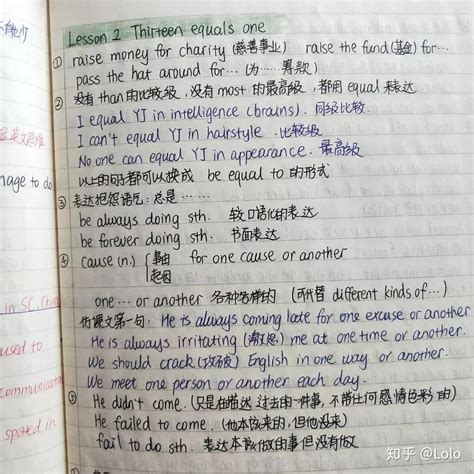 Lesson 2 Thirteen equals one
① raise money for charity (慈善事业) raise the fund (基金) for…
pass the hat around for… (为……筹款)
② 没有than的比较级，没有most的最高级，都用equal来表达
I equal YJ in intelligence (brains). 同级比较.
I can't equal YJ in hairstyle. 比较级
No one can equal YJ in appearance. 最高级
以上的句子都可以换成 be equal to 的形式
③ 表达抱怨语气：总是……
be always doing sth. 较口语化的表达
be forever doing sth. 书面表达
④ cause (n.) { 事由 for one cause or another
起因
one … or another 各种各样的 (可代替 different kinds of…)
仿课文第一句：He is always coming late for one excuse or another.
He is always irritating (激怒) me at one time or another.
We should crack (攻破) English in one way or another.
We meet one person or another each day.
He didn't come. (只是在描述过去的一件事，不带任何感情色彩的)
He failed to come. (他本该来的，但他没来)
fail to do sth. 表达本该做的事但没有做
nage to do
in SC. China
used to
communication
spotted in
知乎 @Lolo